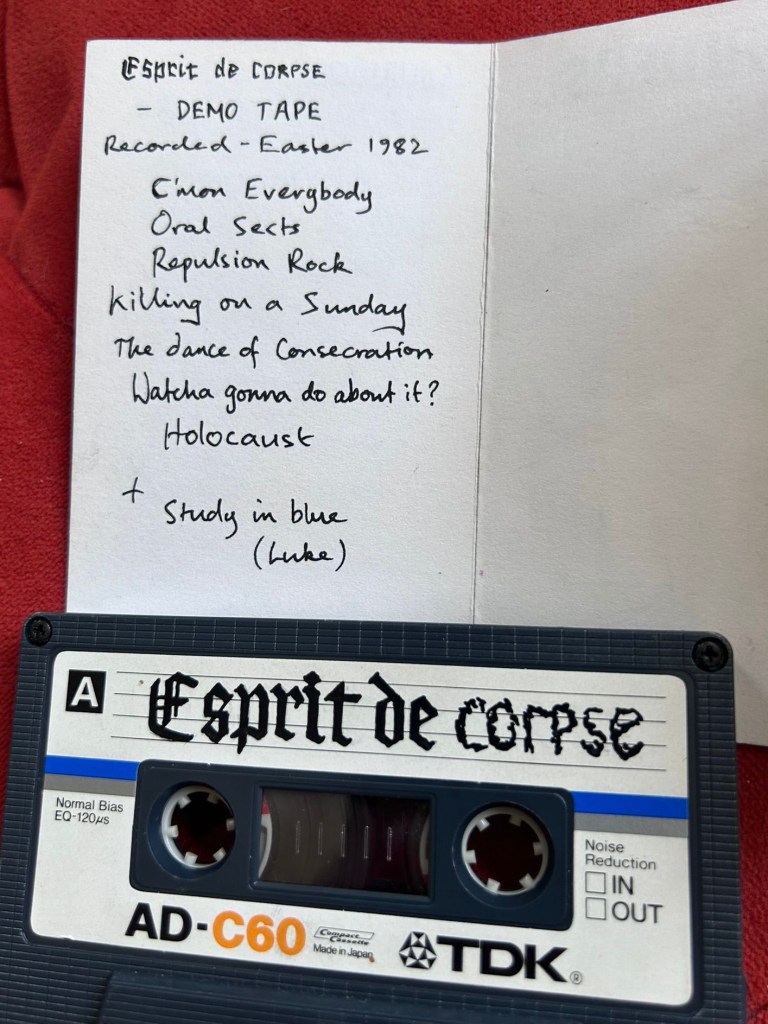 Esprit de CORPSE
- DEMO TAPE
Recorded - Easter 1982
C'mon Everybody
Oral Sects
Repulsion Rock
Killing on a Sunday
The dance of Consecration
Watcha gonna do about it?
Holocaust
+
Study in blue
(Luke)
A
Esprit de corpse
Normal Bias
EQ-120μs
Noise
Reduction
IN
OUT
AD-C60
Compact
Cassette
Made in Japan
TDK®